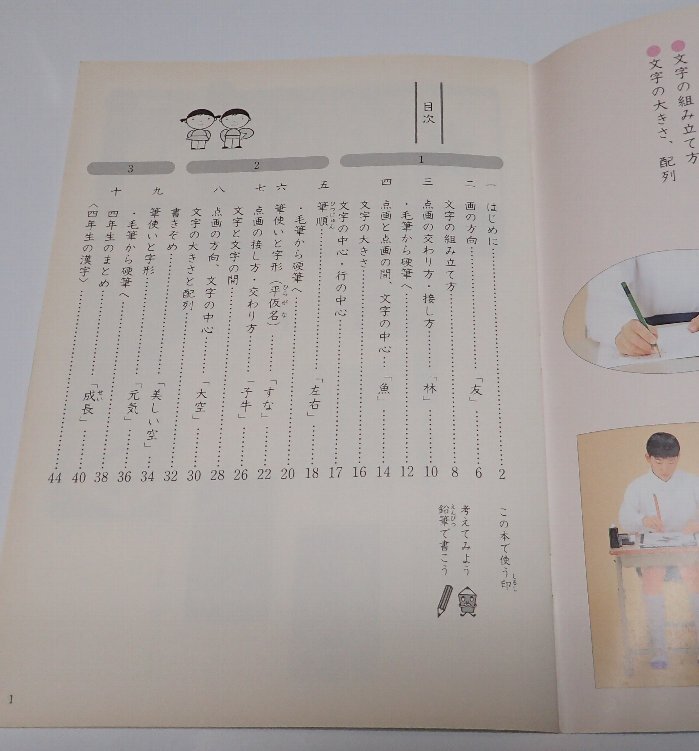 文字の組み立て方
文字の大きさ、配列
目次
1
一 はじめに 2
二 画の方向 「友」 6
文字の組み立て方 8
三 点画の交わり方・接し方 「林」 10
・毛筆から硬筆へ 12
四 点画と点画の間、文字の中心 「魚」 14
文字の大きさ 16
文字の中心・行の中心 17
2
五 筆順 「左右」 18
ひつじゅん
・毛筆から硬筆へ 20
六 筆使いと字形（平仮名） 「すな」 22
ひらがな
七 点画の接し方・交わり方 「子牛」 26
文字と文字の間 28
八 点画の方向、文字の中心 「大空」 30
文字の大きさと配列 32
3
書きぞめ 「美しい空」 34
九 筆使いと字形 「元気」 36
・毛筆から硬筆へ 38
十 四年生のまとめ 「成長」 40
せい
〈四年生の漢字〉 44
この本で使う印
しるし
考えてみよう
鉛筆で書こう
えんぴつ
1